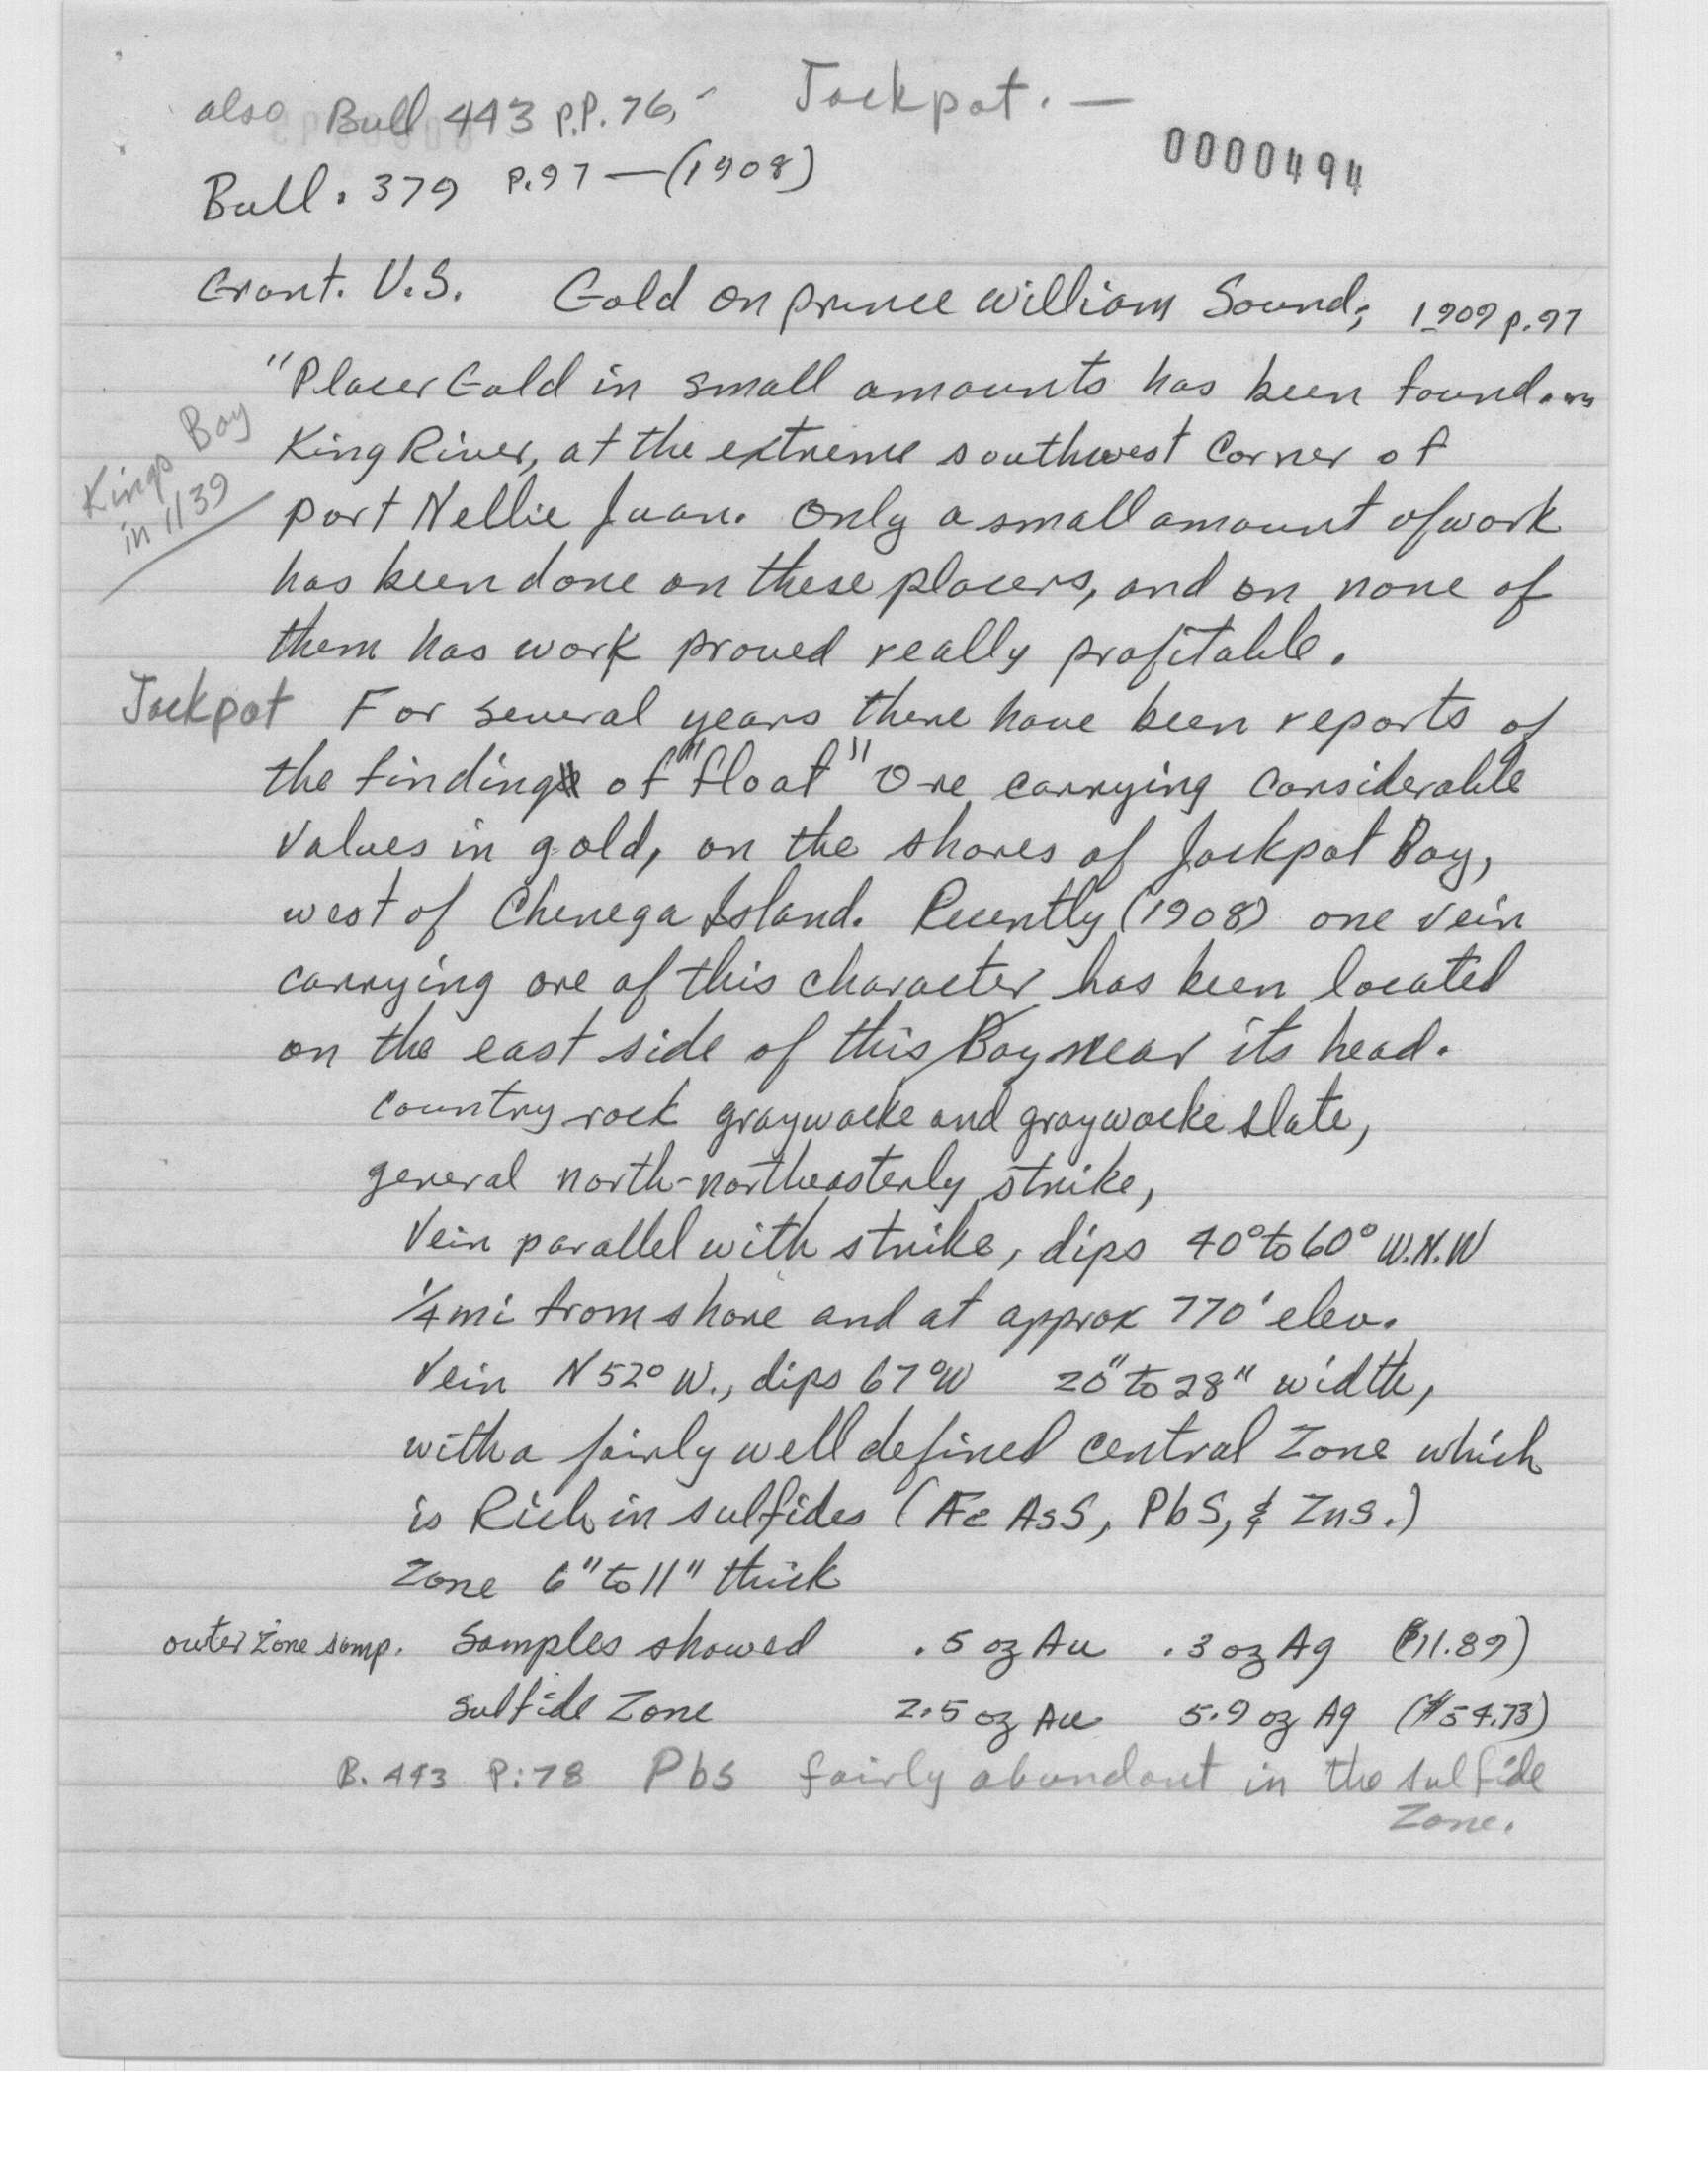 Jackpot. —
also Bull 443 p.p. 76,-
0000494
Bull. 379 p.97 — (1908)
Grant. U.S. Gold on prince William Sound; 1909 p.97
"Placer Gold in small amounts has been found on
King River, at the extreme southwest Corner of
port Nellie Juan. Only a small amount of work
has been done on these placers, and on none of
them has work proved really profitable.
Kings Bay
in 1139
Jackpot For several years there have been reports of
the finding of "float" Ore carrying considerable
values in gold, on the shores of Jackpot Bay,
west of Chenega Island. Recently (1908) one vein
carrying ore of this character has been located
on the east side of this Bay near its head.
Country rock graywacke and graywacke slate,
general north-northeasterly strike,
Vein parallel with strike, dips 40° to 60° W.N.W
1/4 mi from shore and at approx 770' elev.
Vein N 52° W., dips 67° W 20" to 28" width,
with a fairly well defined central Zone which
is Rich in sulfides (Fe AsS, PbS, & ZnS.)
Zone 6" to 11" thick
outer zone samp. Samples showed .5 oz Au .3 oz Ag ($11.89)
Sulfide Zone 2.5 oz Au 5.9 oz Ag ($54.73)
B. 443 P:78 Pbs fairly abundant in the sulfide
Zone.